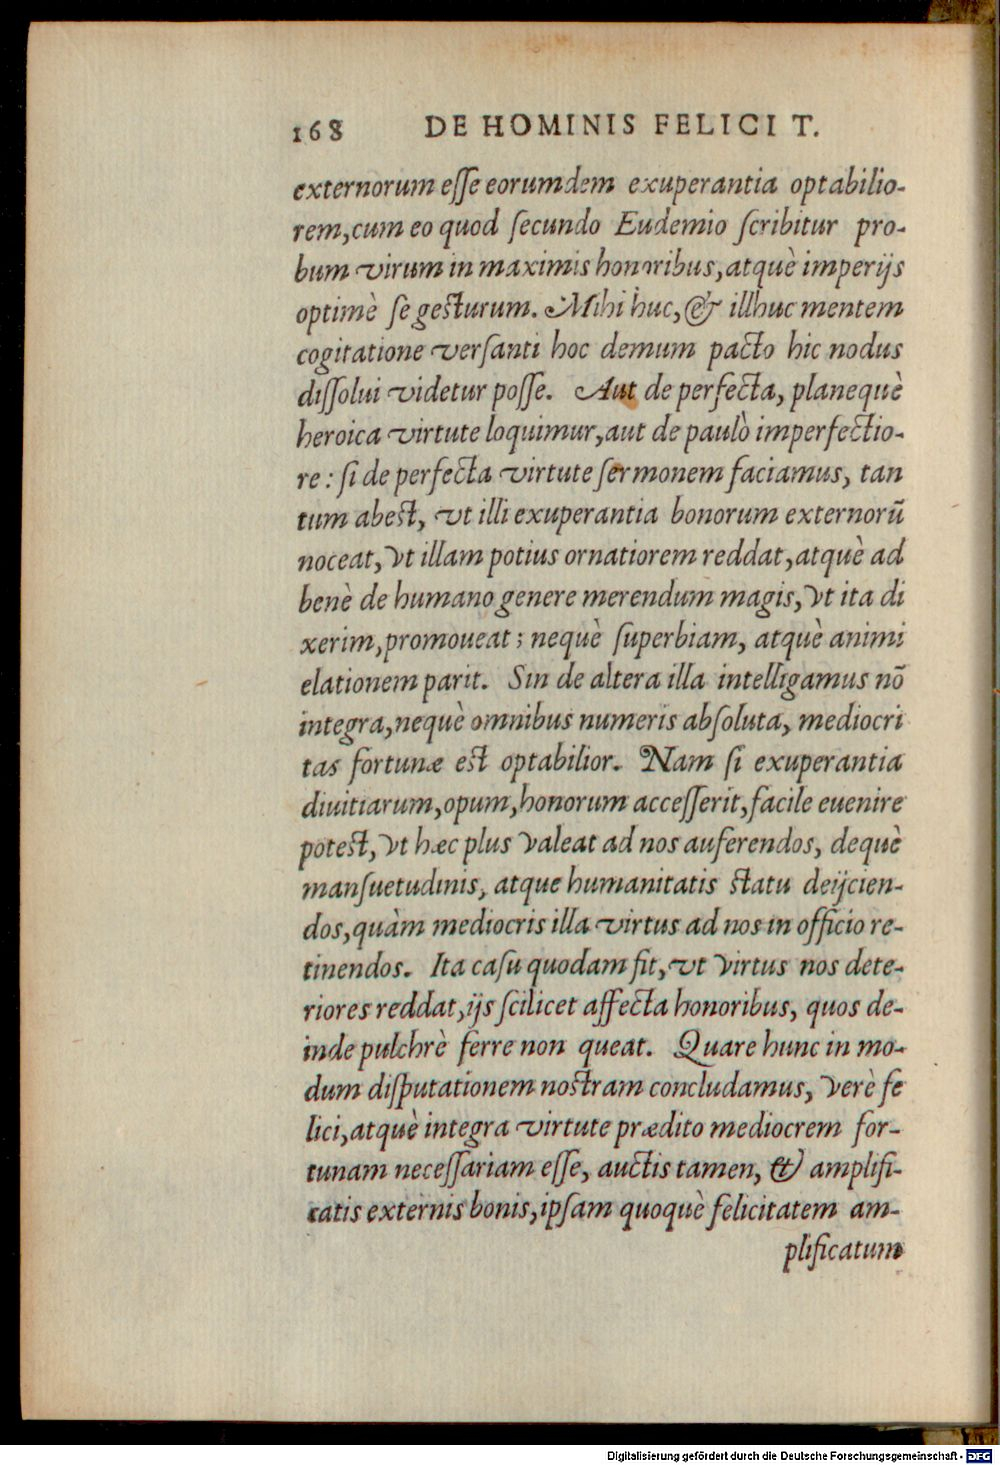 168 DE HOMINIS FELICIT.
externorum esse eorumdem exuperantia optabilio-
rem, cum eo quod secundo Eudemio scribitur pro-
bum virum in maximis honoribus, atquè imperijs
optimè se gesturum. Mihi huc, & illhuc mentem
cogitatione versanti hoc demum pacto hic nodus
dissolui videtur posse. Aut de perfecta, planequè
heroica virtute loquimur, aut de paulò imperfectio-
re: si de perfecta virtute sermonem faciamus, tan
tum abest, vt illi exuperantia bonorum externorū
noceat, vt illam potius ornatiorem reddat, atquè ad
benè de humano genere merendum magis, vt ita di
xerim, promoueat; nequè superbiam, atquè animi
elationem parit. Sin de altera illa intelligamus nō
integra, nequè omnibus numeris absoluta, mediocri
tas fortunæ est optabilior. Nam si exuperantia
diuitiarum, opum, honorum accesserit, facile euenire
potest, vt hæc plus valeat ad nos auferendos, dequè
mansuetudinis, atque humanitatis statu deijcien-
dos, quàm mediocris illa virtus ad nos in officio re-
tinendos. Ita casu quodam fit, vt virtus nos dete-
riores reddat, ijs scilicet affecta honoribus, quos de-
inde pulchrè ferre non queat. Quare hunc in mo-
dum disputationem nostram concludamus, verè fe
lici, atquè integra virtute prædito mediocrem for-
tunam necessariam esse, auctis tamen, & amplifi-
catis externis bonis, ipsam quoquè felicitatem am-
plificatum
Digitalisierung gefördert durch die Deutsche Forschungsgemeinschaft - DFG